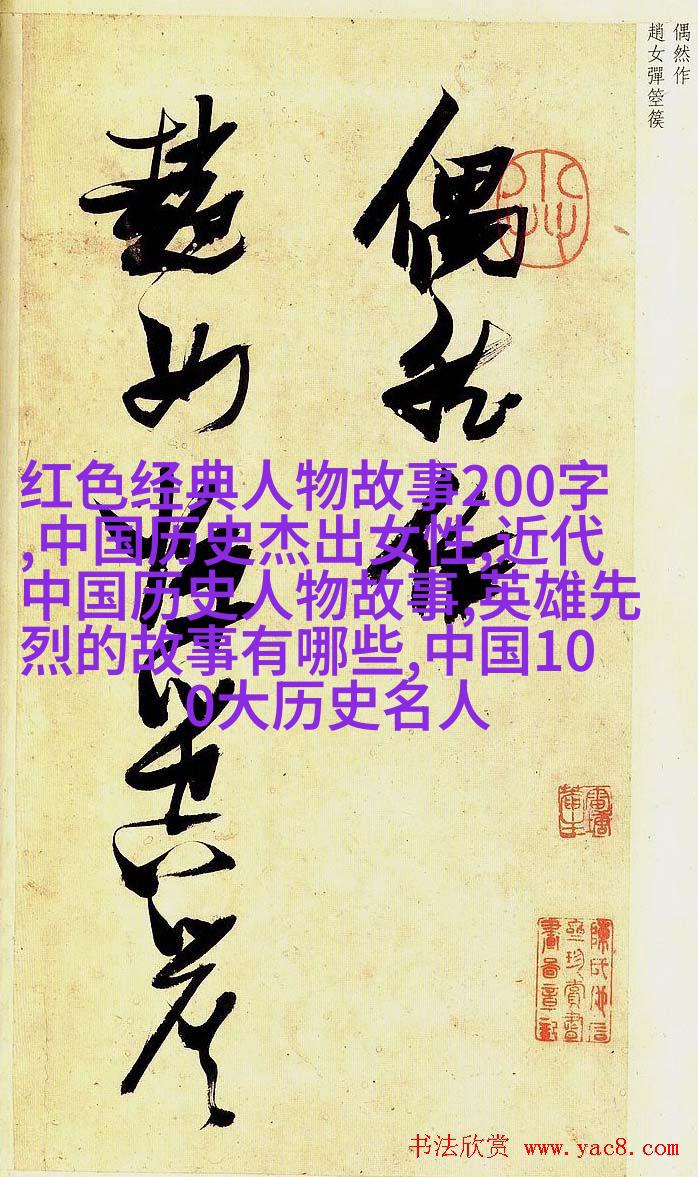 偶然作
趙女彈箜篌
偶然作
趙女彈箜篌
红色经典人物故事200字
,中国历史杰出女性,近代
中国历史人物故事,英雄先
烈的故事有哪些,中国10
0大历史名人
书法欣赏 www.yac8.com